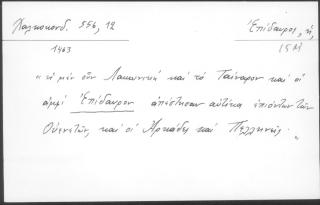 Χαλκοκονδ. 556, 12
Ἐπίδαυρος, ἡ,
1463
15 Μ
"ἡ μὲν οὖν Λακωνικὴ καὶ τὸ Ταίναρον καὶ οἱ
ἀμφὶ Ἐπίδαυρον ἀπέστησαν αὐτίκα ἐπιόντων τῶν
Οὐενετῶν, καὶ οἱ Ἀρκάδες καὶ Πελληνεῖς."